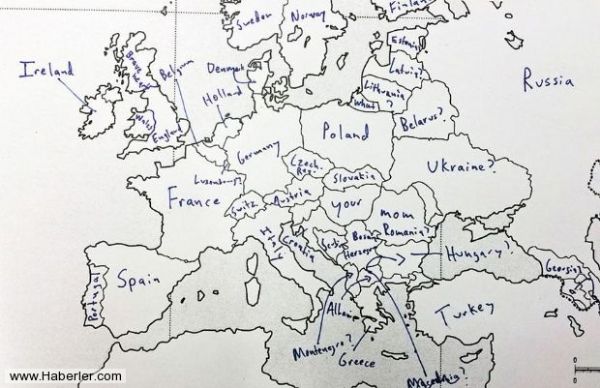 Sweden
Norway
Finland
Estonia
Latvia?
Lithuania
What?
Russia
Ireland
Wales
England
Belgium
Denmark
Holland
Poland
Belarus?
Ukraine?
Germany
Luxembourg?
Czech
Rep.
Slovakia
France
Switz
Austria
your
mom
Romania?
Italy
Croatia
Bosnia
Herzeg
Hungary?
Georgia?
Portugal
Spain
Turkey
Montenegro?
Greece
Macedonia?
www.Haberler.com
0